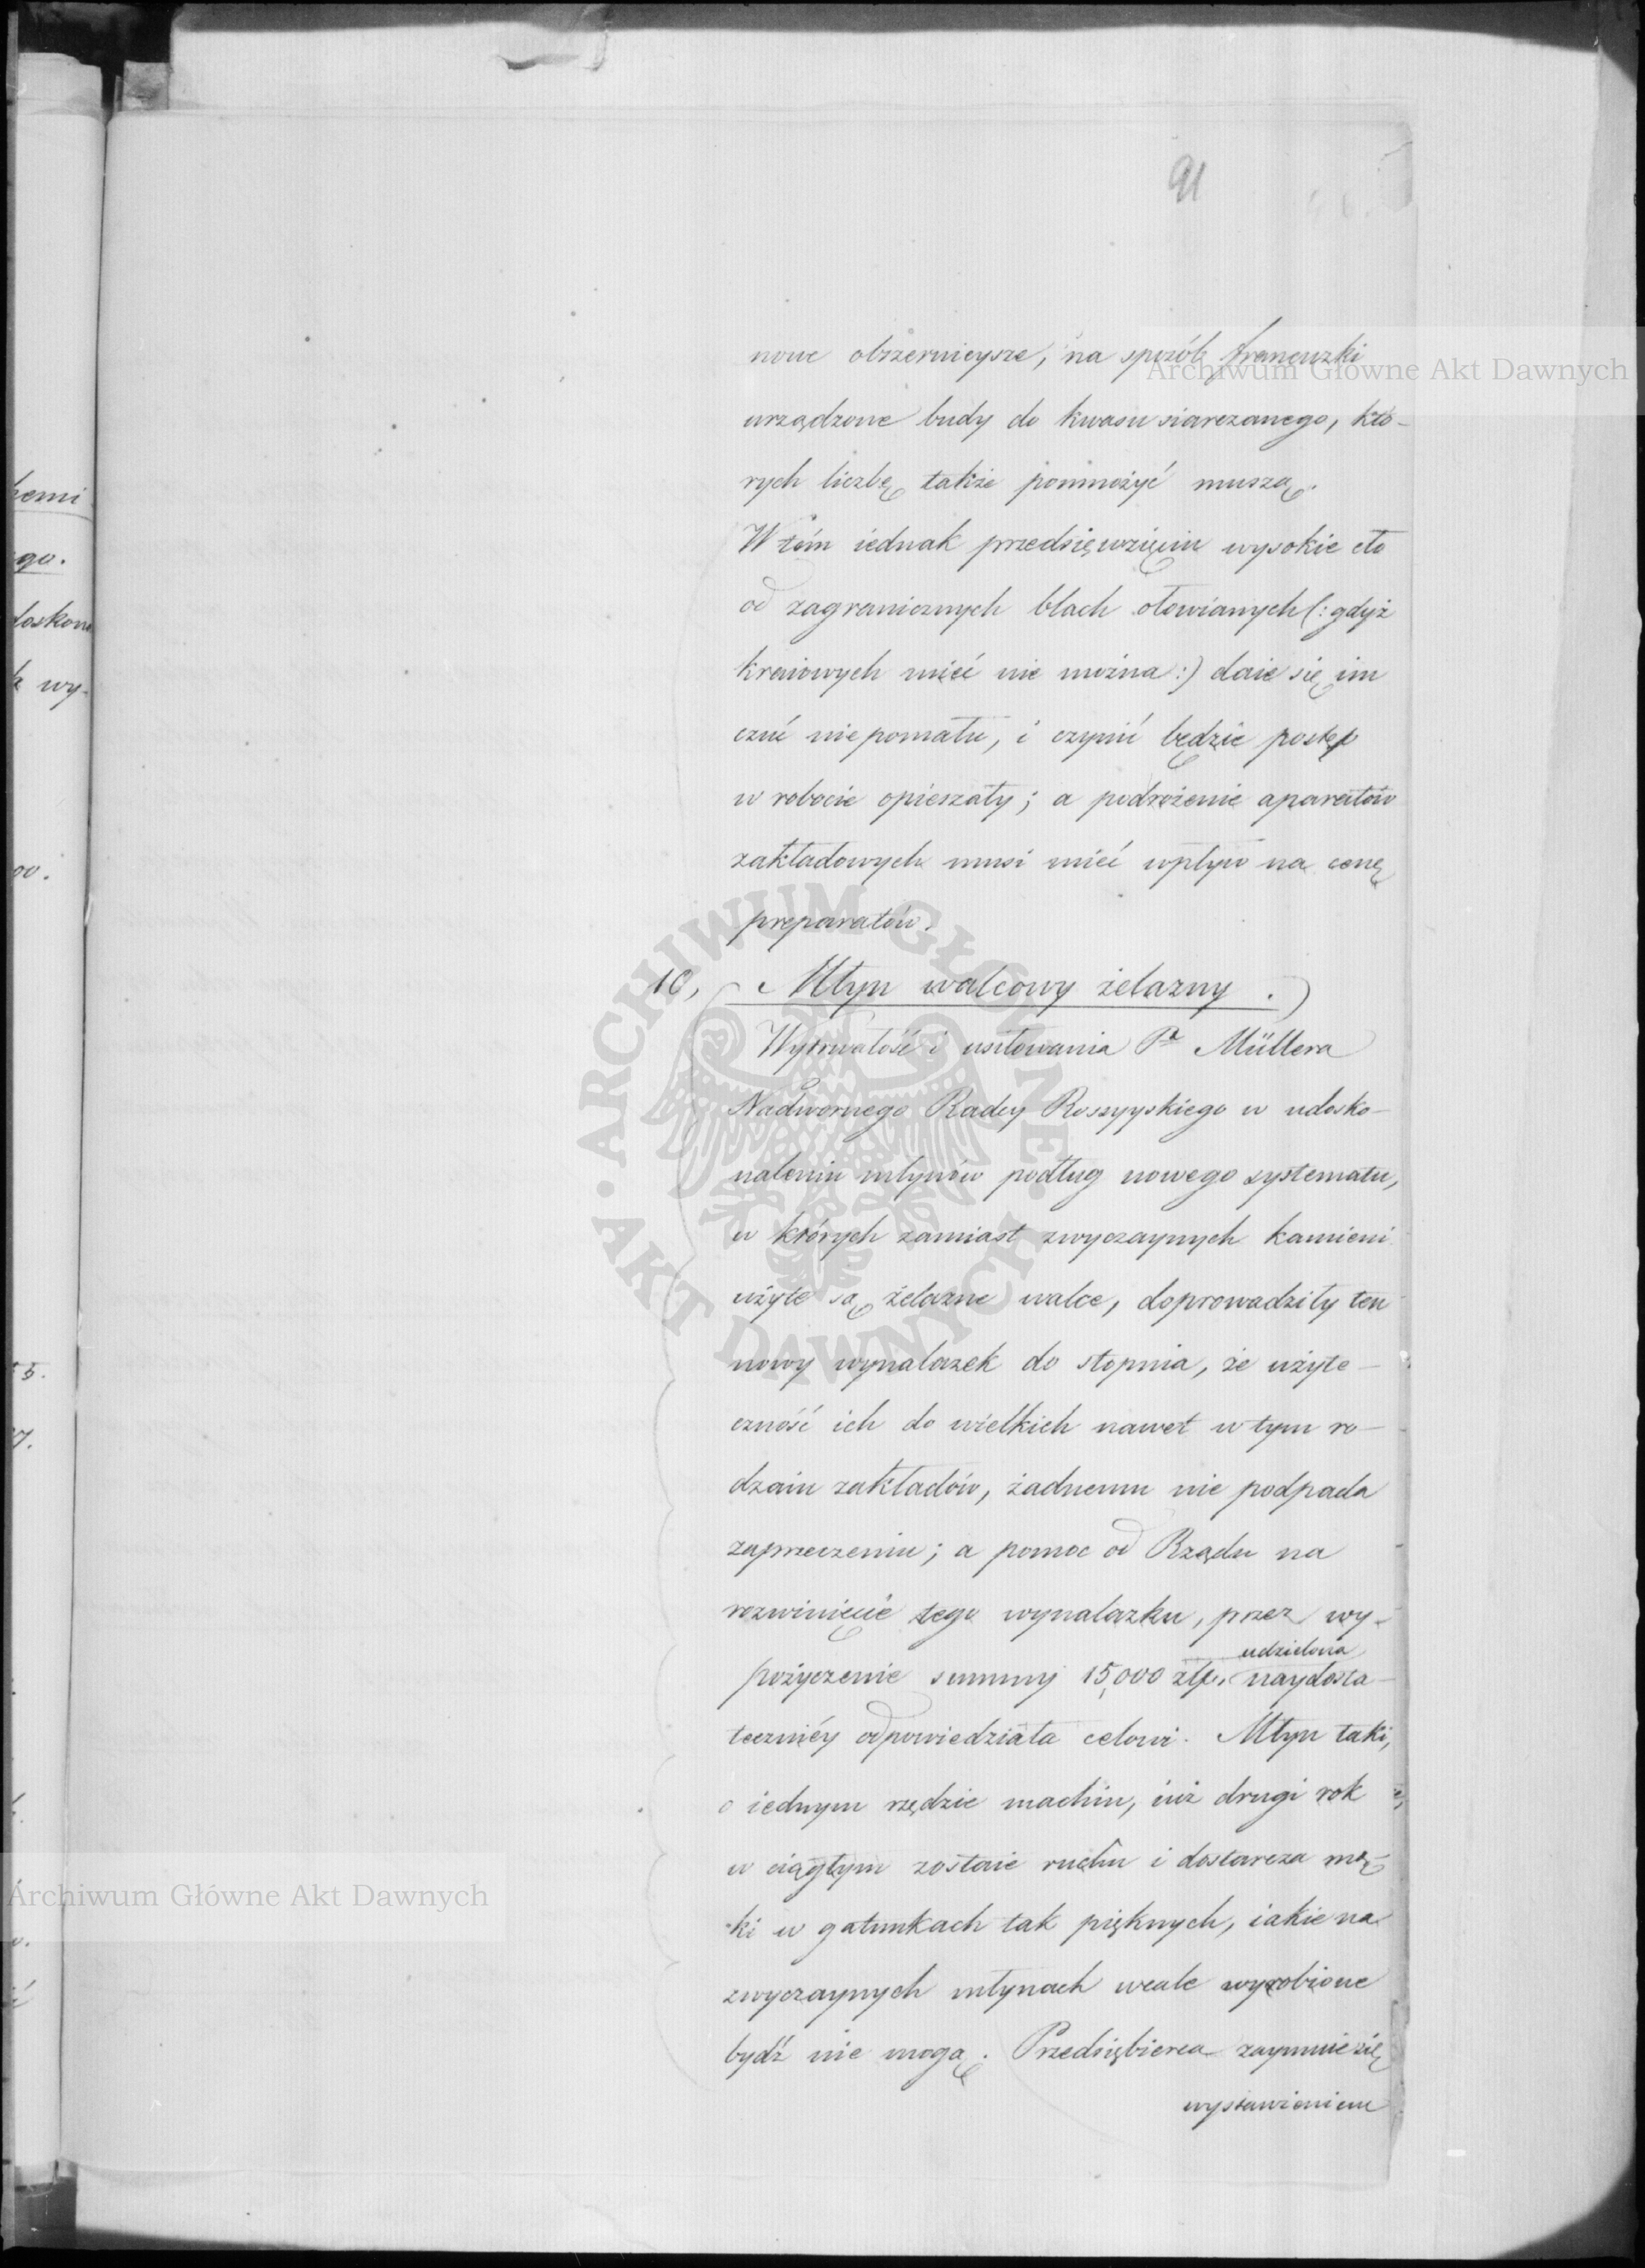 91
nowe obszernieysze, na sposób francuzki
urządzone budy do kwasu siarczanego, któ-
rych liczbę także pomnożyć muszą.
W tém iednak przedsięwzięciu wysokie cło
od zagranicznych blach ołowianych (: gdyż
kraiowych mieć nie można :) daie się im
czuć nie pomału, i czynić będzie postęp
w robocie opieszały; a podrożenie aparatów
zakładowych musi mieć wpływ na cenę
preparatów.
10, Młyn walcowy żelazny.
Wytrwałość i usiłowania Pa Müllera
Nadwornego Radcy Rossyyskiego w udosko-
naleniu młynów podług nowego systematu,
w których zamiast zwyczaynych kamieni
użyte są żelazne walce, doprowadziły ten
nowy wynalazek do stopnia, że użyte-
czność ich do wielkich nawet w tym ro-
dzaiu zakładów, żadnemu nie podpada
zaprzeczeniu; a pomoc od Rządu na
rozwinięcie tego wynalazku, przez wy-
udzielona
pożyczenie summy 15,000 złp. naydosta-
teczniéy odpowiedziała celowi. Młyn taki,
o iednym rzędzie machin, iuż drugi rok
w ciągłym zostaie ruchu i dostarcza mą-
ki w gatunkach tak pięknych, iakie na
zwyczaynych młynach wcale wyrobione
bydź nie mogą. Przedsiębierca zaymuie się
wystawieniem
hemi
go.
doskona
k wy-
00.
5.
7.
Archiwum Główne Akt Dawnych
ARCHIWUM GŁÓWNE AKT DAWNYCH
Archiwum Główne Akt Dawnych